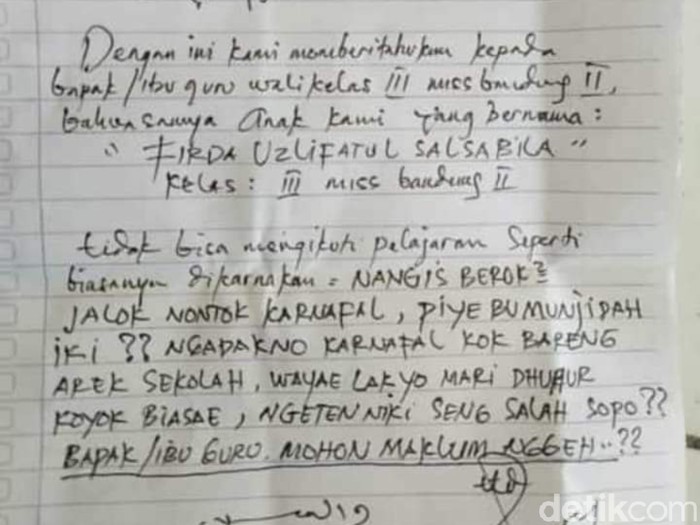 Dengan ini kami memberitahukan kepada
bapak/ibu guru wali kelas III miss bandung II,
bahwasanya anak kami yang bernama:
" FIRDA UZLIFATUL SALSABILA "
Kelas: III miss bandung II
tidak bisa mengikuti pelajaran seperti
biasanya dikarnakan = NANGIS BEROK²
JALOK NONTOK KARNAFAL, PIYE BU MUNJIDAH
iKi ?? NGADAKNO KARNAFAL KOK BARENG
AREK SEKOLAH, WAYAE LAK YO MARI DHUHUR
KOYOK BIASAE, NGETEN NIKI SENG SALAH SOPO??
BAPAK/IBU GURU. MOHON MAKLUM NGGEH..??
ttd
detikcom